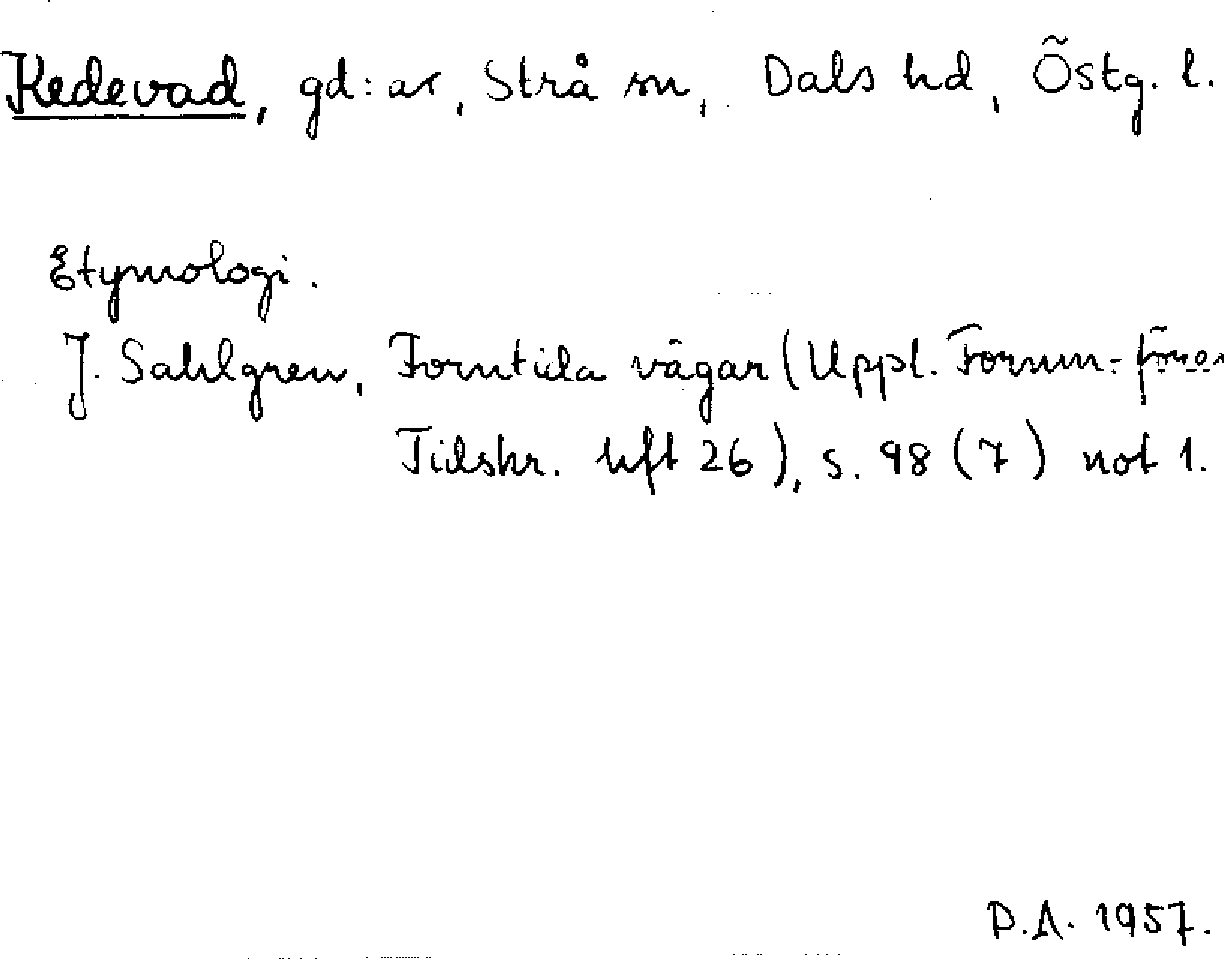 Kedevad, gd:ar, Strå sn, Dals hd, Östg. l.
Etymologi.
J. Sahlgren, Forntida vägar (Uppl. Fornm.-fören
Tidskr. hft 26), s. 98 (7) not 1.
D.A. 1957.